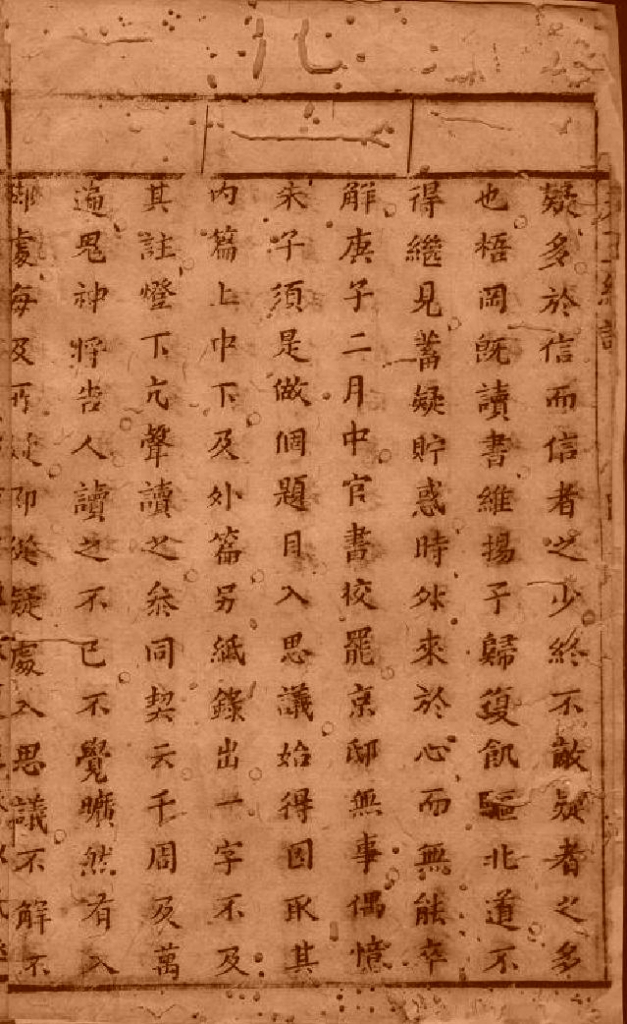 疑多於信而信者之少終不敵疑者之多
也梧岡旣讀書維揚予歸復飢驅北道不
得繼見蓄疑貯惑時時來於心而無能卒
解庚子二月中官書校罷京邸無事偶憶
朱子須是做個題目入思議始得因取其
內篇上中下及外篇另紙錄出一字不及
其註燈下亢聲讀之叅同契云千周及萬
遍鬼神將告人讀之不已不覺曠然有入
處每及所疑卽從疑處入思議不解不